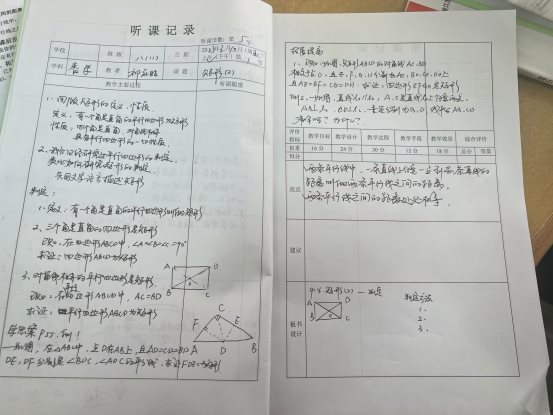 听课记录
听课节数：第 节
学校
班级
八(1)
日期
学科
数学
教者
课题
矩形(2)
教学主要过程
听课随感
一、回顾矩形的定义、性质
定义：有一个角是直角的平行四边形为矩形
性质：四个角是直角，对角线相等
具备平行四边形的一切性质
2、我们已经研究过平行四边形的判定，
类比如何研究矩形的判定
先用文字语言描述矩形
判定：
1、定义：有一个角是直角的平行四边形叫做矩形
2、三个角是直角的四边形是矩形
已知：在四边形ABCD中，∠A=∠B=∠C=90°
求证：四边形ABCD为矩形
A
D
B
C
3、对角线相等的平行四边形是矩形
已知：在 四边形ABCD中，AC=BD
求证：平行四边形ABCD为矩形
C
F
E
A
D
B
学思案 P55. 例1
一如图，在△ABC中，点D在AB上，且AD=CD=BD
DE, DF分别是∠BDC, ∠ADC的平分线，求证FDE
拓展提高
1、已知：如图，矩形ABCD的对角线AC、BD
相交于点O，且E、F、G、H分别在AO、BO、CO、DO上
且AE=BF=CG=DH，求证：四边形EFGH是矩形
例2、一如图，直线l₁∥l₂，A、C是直线l₁上任意两点，
AB⊥l₂，CD⊥l₂，垂足分别为B、D，线段AB、CD
相等吗？为什么？
评价指标
教学目标
教学设计
教学过程
教学手段
教学效果
综合评价
权重
16分
24分
30分
12分
18分
总分
等第
得分
亮点
两条平行线中，一条直线上任一点到另一条直线的
距离叫做两条平行线之间的距离。
两条平行线之间的距离处处相等
建议
板书设计
9.4 矩形(2) — 判定
判定方法
A
D
B
C
1、
2、
3、